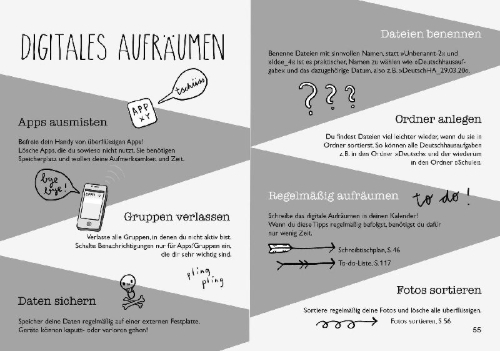 DIGITALES AUFRÄUMEN
APP
XY
tschüss
Apps ausmisten
Befreie dein Handy von überflüssigen Apps!
Lösche Apps, die du sowieso nicht nutzt. Sie benötigen
Speicherplatz und wollen deine Aufmerksamkeit und Zeit.
bye
bye!
Gruppen verlassen
Verlasse alle Gruppen, in denen du nicht aktiv bist.
Schalte Benachrichtigungen nur für Apps/Gruppen ein,
die dir sehr wichtig sind.
pling
pling
Daten sichern
Speicher deine Daten regelmäßig auf einer externen Festplatte.
Geräte können kaputt- oder verloren gehen!
Dateien benennen
Benenne Dateien mit sinnvollen Namen, statt »Unbenannt-2« und
»Idee_4« ist es praktischer, Namen zu wählen wie »Deutschhausauf-
gabe« und das dazugehörige Datum, also z.B. »DeutschHA_29.03.20«.
???
Ordner anlegen
Du findest Dateien viel leichter wieder, wenn du sie in
Ordner sortierst. So können alle Deutschhausaufgaben
z.B. in den Ordner »Deutsch« und der wiederum
in den Ordner »Schule«.
Regelmäßig aufräumen
to do!
Schreibe das digitale Aufräumen in deinen Kalender!
Wenn du diese Tipps regelmäßig befolgst, benötigst du dafür
nur wenig Zeit.
Schreibtischplan, S.46
To-do-Liste, S.117
Fotos sortieren
Sortiere regelmäßig deine Fotos und lösche alle überflüssigen.
Fotos sortieren, S.56
55